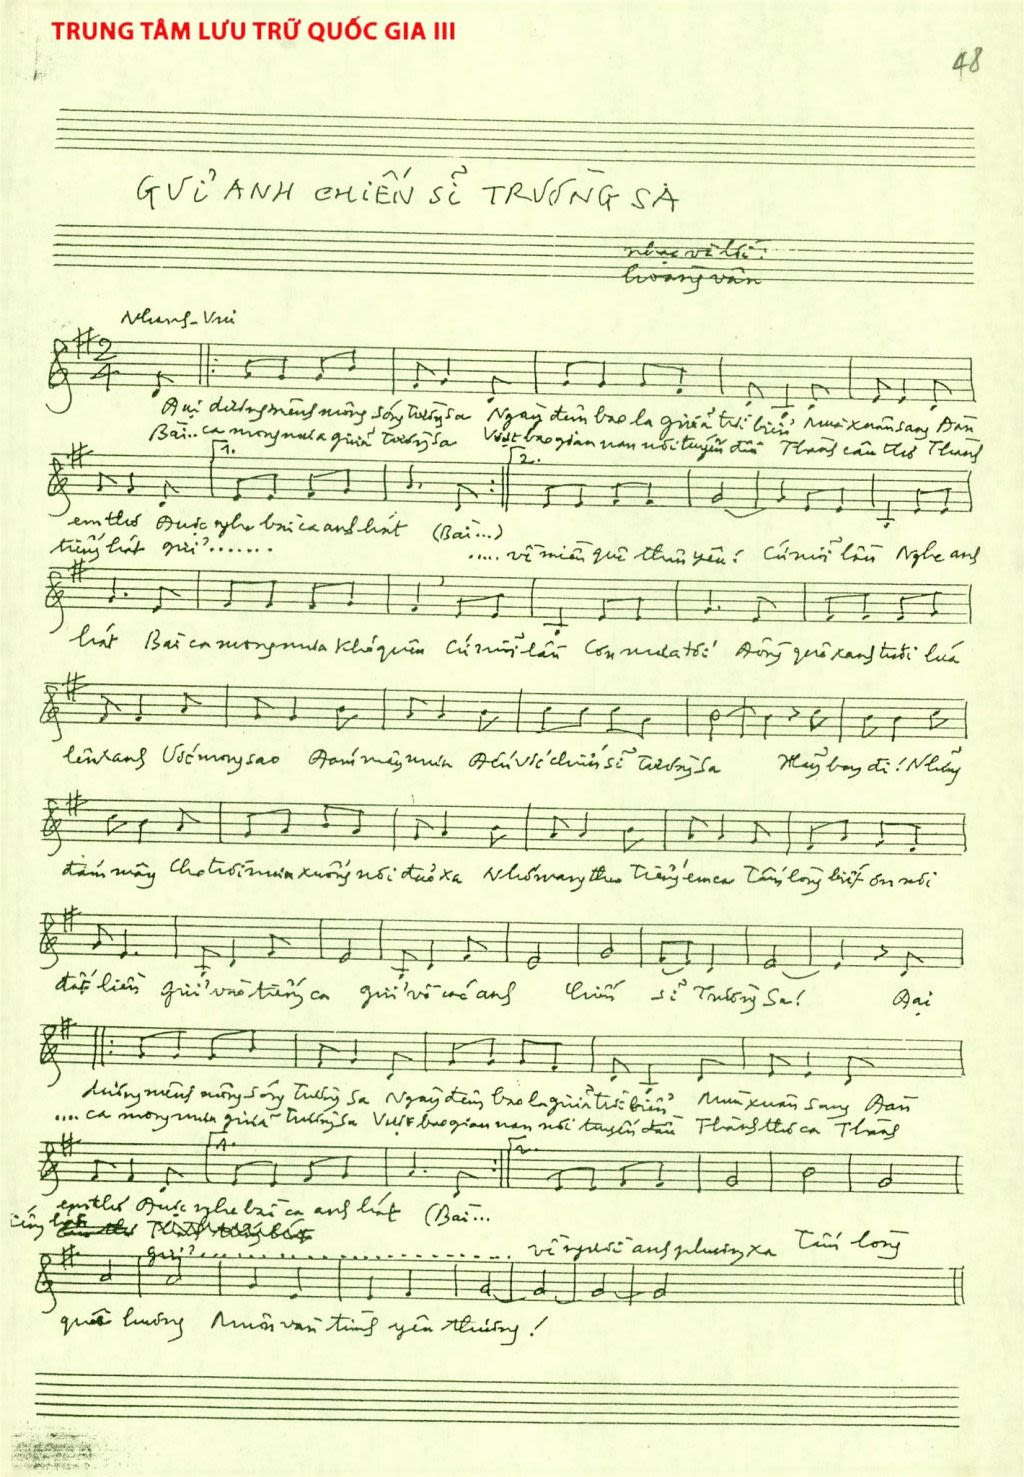 TRUNG TÂM LƯU TRỮ QUỐC GIA III
48
GỬI ANH CHIẾN SĨ TRƯỜNG SA
nhạc và lời:
hoàng vân
Nhanh - Vui
2
4
Đại dương mênh mông sóng trường sa Ngày đêm bao la giữa trời biển Mùa xuân sang Đàn
Bài.. ca mong mưa giữa trường sa Vượt bao gian nan nơi tuyến đầu Thành câu thơ Thành
1. 2.
em thơ Được nghe bài ca anh hát (Bài...)
tiếng hát gửi....... ..... về miền quê thân yêu! Cứ mỗi lần Nghe anh
hát Bài ca mong mưa khó quên Cứ mỗi lần Cơn mưa tới Đồng quê xanh tươi lúa
lên xanh Ước mong sao Đám mây mưa chiến sĩ trường sa Hãy bay đi! Những
đám mây Cho trời mưa xuống nơi đảo xa Nhớ mang theo Tiếng em ca Tấm lòng biết ơn nơi
đất liền gửi vào tiếng ca gửi về các anh Chiến sĩ Trường Sa! Đại
dương mênh mông sóng trường sa Ngày đêm bao la giữa trời biển Mùa xuân sang Đàn
.... ca mong mưa giữa trường sa Vượt bao gian nan nơi tuyến đầu Thành thơ ca Thành
1. 2.
em thơ Được nghe bài ca anh hát (Bài...
tiếng hát
gửi................. về người anh phương xa Tấm lòng
quê hương Muôn vàn tình yêu thương!